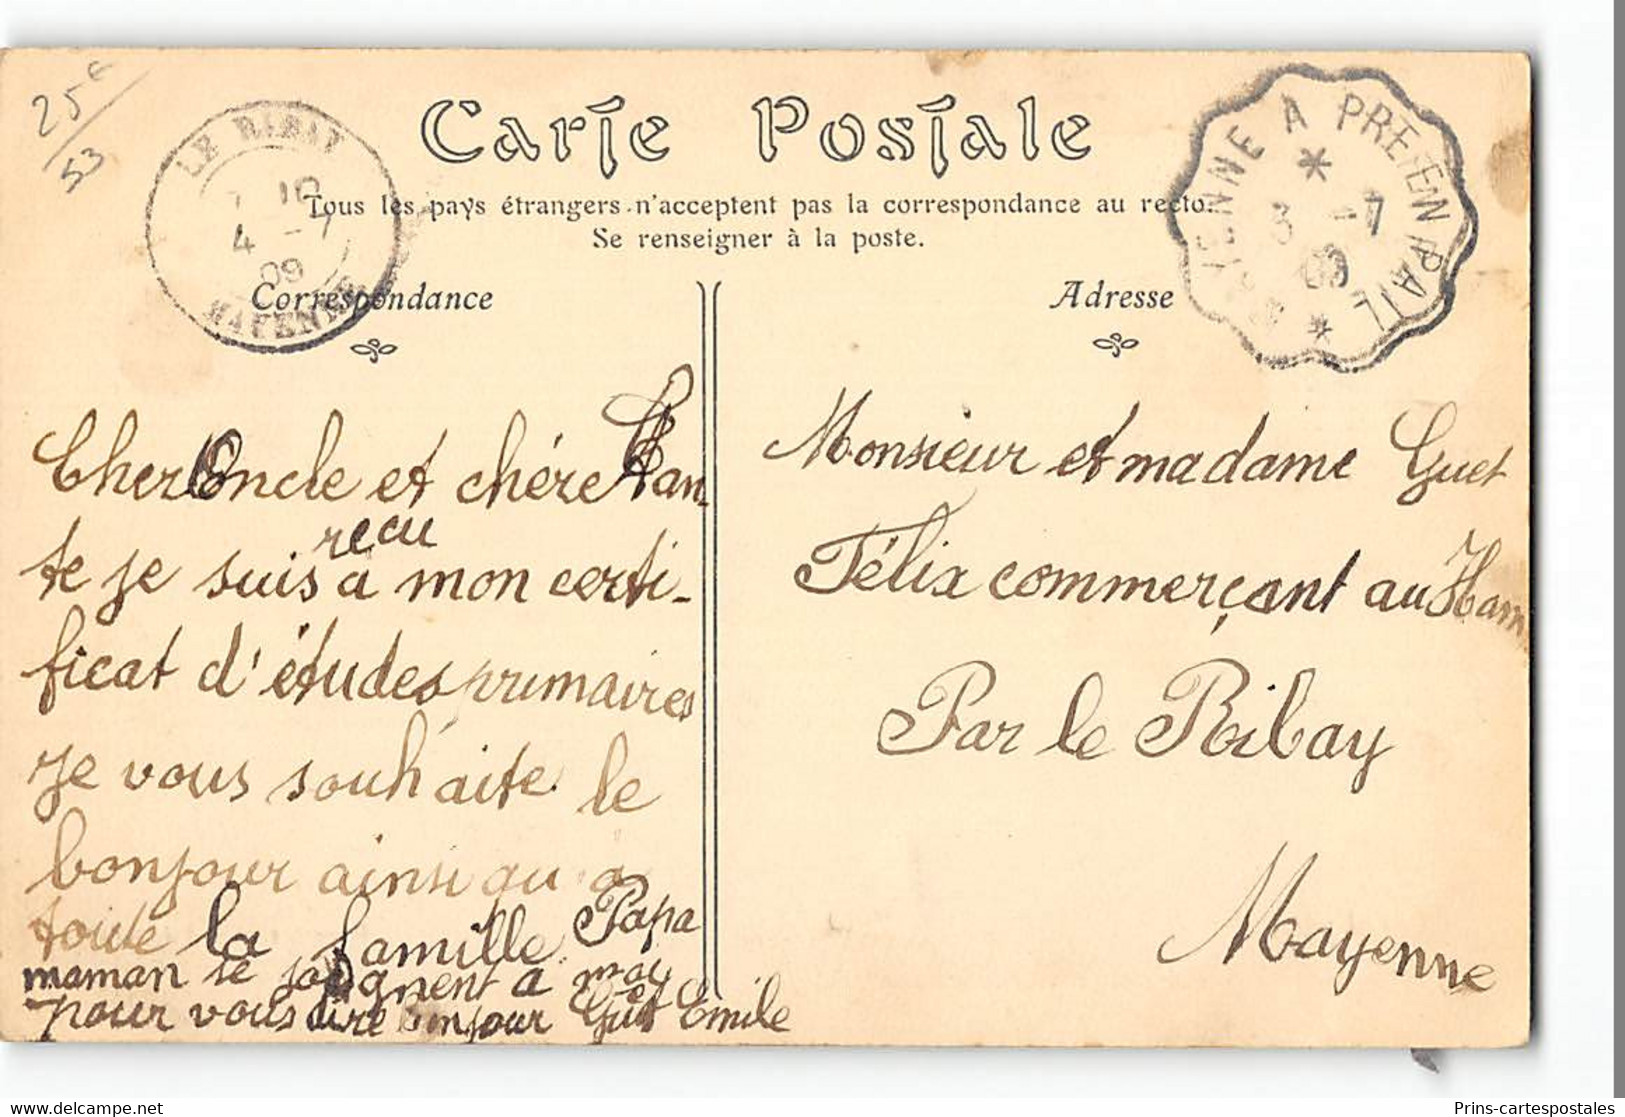 25€
53
LE RIBAY
7 10
4 -7
09
MAYENNE
Carte Postale
MAYENNE A PRE-EN-PAIL
3 -7
09
Tous les pays étrangers n'acceptent pas la correspondance au recto.
Se renseigner à la poste.
Correspondance
Adresse
Cher Oncle et chére Tan-
te je suis reçu a mon certi-
ficat d'études primaires
Je vous souhaite le
bonjour ainsi qu a
toute la famille Papa
maman se joignent a moy
pour vous dire bonjour Guet Emile
Monsieur et madame Guet
Félix commerçant au Ham
Par le Ribay
Mayenne
Prins-cartespostales